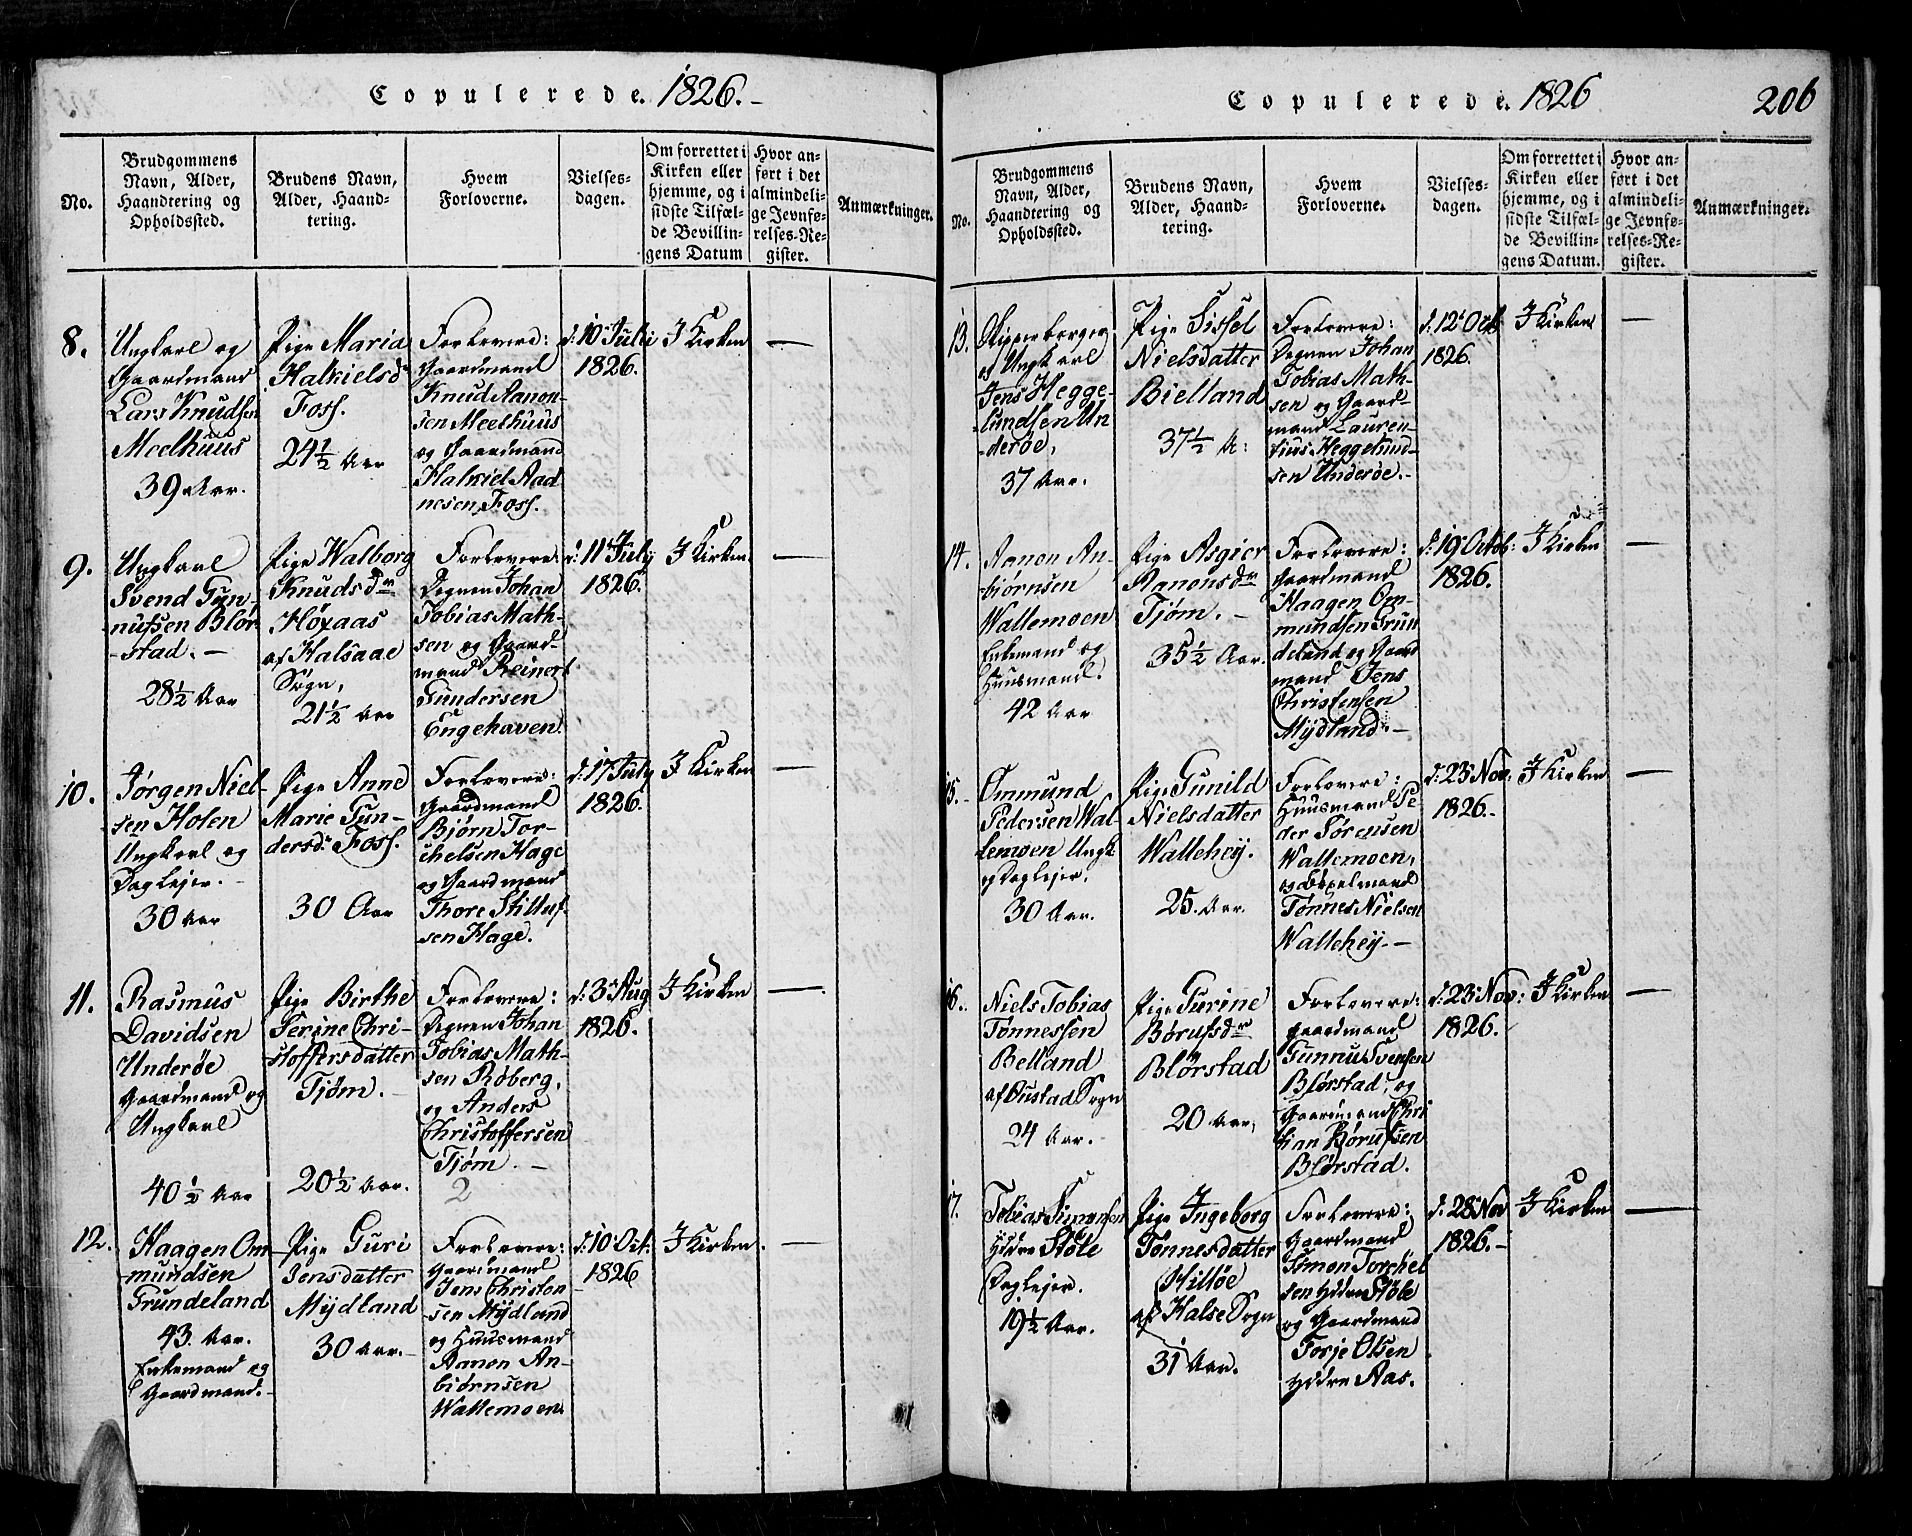 Copulerede. 1826.
No.
Brudgommens
Navn, Alder,
Haandtering og
Opholdssted.
Brudens Navn,
Alder, Haand-
tering.
Hvem
Forloverne.
Vielses-
dagen.
Om forrettet i
Kirken eller
hjemme, og i
sidste Tilfæl-
de Bevillin-
gens Datum
Hvor an-
ført i det
almindeli-
ge Jevnfø-
relses-Re-
gister.
Anmærkninger.
8.
Ungkarl og
Gaardmand
Lars Knudsen
Meelhuus
39 Aar.
Pige Maria
Halkielsd
Foss.
24½ Aar
Forlovere:
Gaardmand
Knud Aanon-
sen Meelhuus
og Gaardmand
Halkiel Aad
nesen, Foss.
d: 10 Juli
1826.
I Kirken
—
9.
Ungkarl
Svend Gun-
nufsen Blør-
stad. -
28½ Aar
Pige Walborg
Knudsdr
Høyaas
af Halsaae
Sogn,
21½ Aar
Forlovere
Degnen Johan
Tobias Math-
sen og Gaard-
mand Reinert
Gundersen
Engehaven.
d: 11 July
1826.
I Kirken
—
10.
Jørgen Niel-
sen Holen
Ungkarl og
Daglejer. -
30 Aar
Pige Anne
Marie Gun-
dersd: Foss.
30 Aar
Forlovere:
Gaardmand
Bjørn Tor-
chelsen Hage
og Gaardmand
Thore Stilluf-
sen Hage.
d: 17 July
1826.
I Kirken
—
11.
Rasmus
Davidsen
Underøe
Gaardmand og
Ungkarl
40½ Aar
Pige Birthe
Serine Chri-
stoffersdatter
Tjøm. -
20½ Aar.
Forlovere:
Degnen Johan
Tobias Math-
sen Røberg,
og Anders
Christoffersen
Tjøm. -
2
d: 3 Aug
1826.
I Kirken
—
12.
Haagen Om-
mundsen
Grundeland
43. Aar.
Enkemand og
Gaardmand. -
Pige Guri
Jensdatter
Mydland
30 Aar. -
Forlovere:
Gaardmand
Jens Christen-
sen Mydland
og Huusmand
Aanon An-
biørnsen
Wallemoen
d: 10 Oct:
1826
I Kirken.
—
Copulerede. 1826
206
No.
Brudgommens
Navn, Alder,
Haandtering og
Opholdssted.
Brudens Navn,
Alder, Haand-
tering.
Hvem
Forloverne.
Vielses-
dagen.
Om forrettet i
Kirken eller
hjemme, og i
sidste Tilfæl-
de Bevillin-
gens Datum.
Hvor an-
ført i det
almindeli-
ge Jevnfø-
relses-Re-
gister.
Anmærkninger.
13.
Skipperborger
og Ungkarl
Jens Hegge-
lundsen Un
-derøe,
37 Aar.
Pige Sissel
Nielsdatter
Bielland
37½ A:
Forlovere:
Degnen Johan
Tobias Math-
sen og Gaard-
mand Lauren-
tius Heggelund-
sen Underøe. -
d: 12 Oct
1826.
I Kirken
—
14.
Aanon An-
biørnsen
Wallemoen
Enkemand og
Huusmand.
42 Aar
Pige Asgier
Aanonsdr
Tjøm. -
35½ Aar.
Forlovere:
Gaardmand
Haagen Om-
mundsen Grun
deland og Gaard
mand Jens
Christensen
Mydland. -
d: 19 Octob:
1826.
I Kirken
—
15.
Ommund
Pedersen Wal-
lemoen Ungk
og Daglejer.
30 Aar.
Pige Gunild
Nielsdatter
Wallehey.
25. Aar.
Forlovere:
Huusmand Pe-
der Sørensen
Wallemoen,
Tønnes Nielsen
Wallehey. -
d: 23 Nov:
1826. -
I Kirken
—
16.
Niels Tobias
Tønnessen
Belland
af Oustad Sogn
24 Aar. -
Pige Gurine
Børufsdr
Blørstad
20 Aar,
Forlovere:
Gaardmand
Gunnu Svensen
Blørstad, og
Gaardmand Chri
tian Børufsen
Blørstad.
d: 23 Nov:
1826.
I Kirken
—
17.
Tobias Simonsen
Ydre Støle
Daglejer.
19½ Aar.
Pige Ingeborg
Tønnesdatter
Hilløe
af Halse Sogn
31 Aar.
Forlovere:
Gaardmand
Simon Torchel
sen Ydre Støle
og Gaardmand
Torje Olsen
Ydre Aas.
d: 28 Nov
1826. -
I Kirken
—